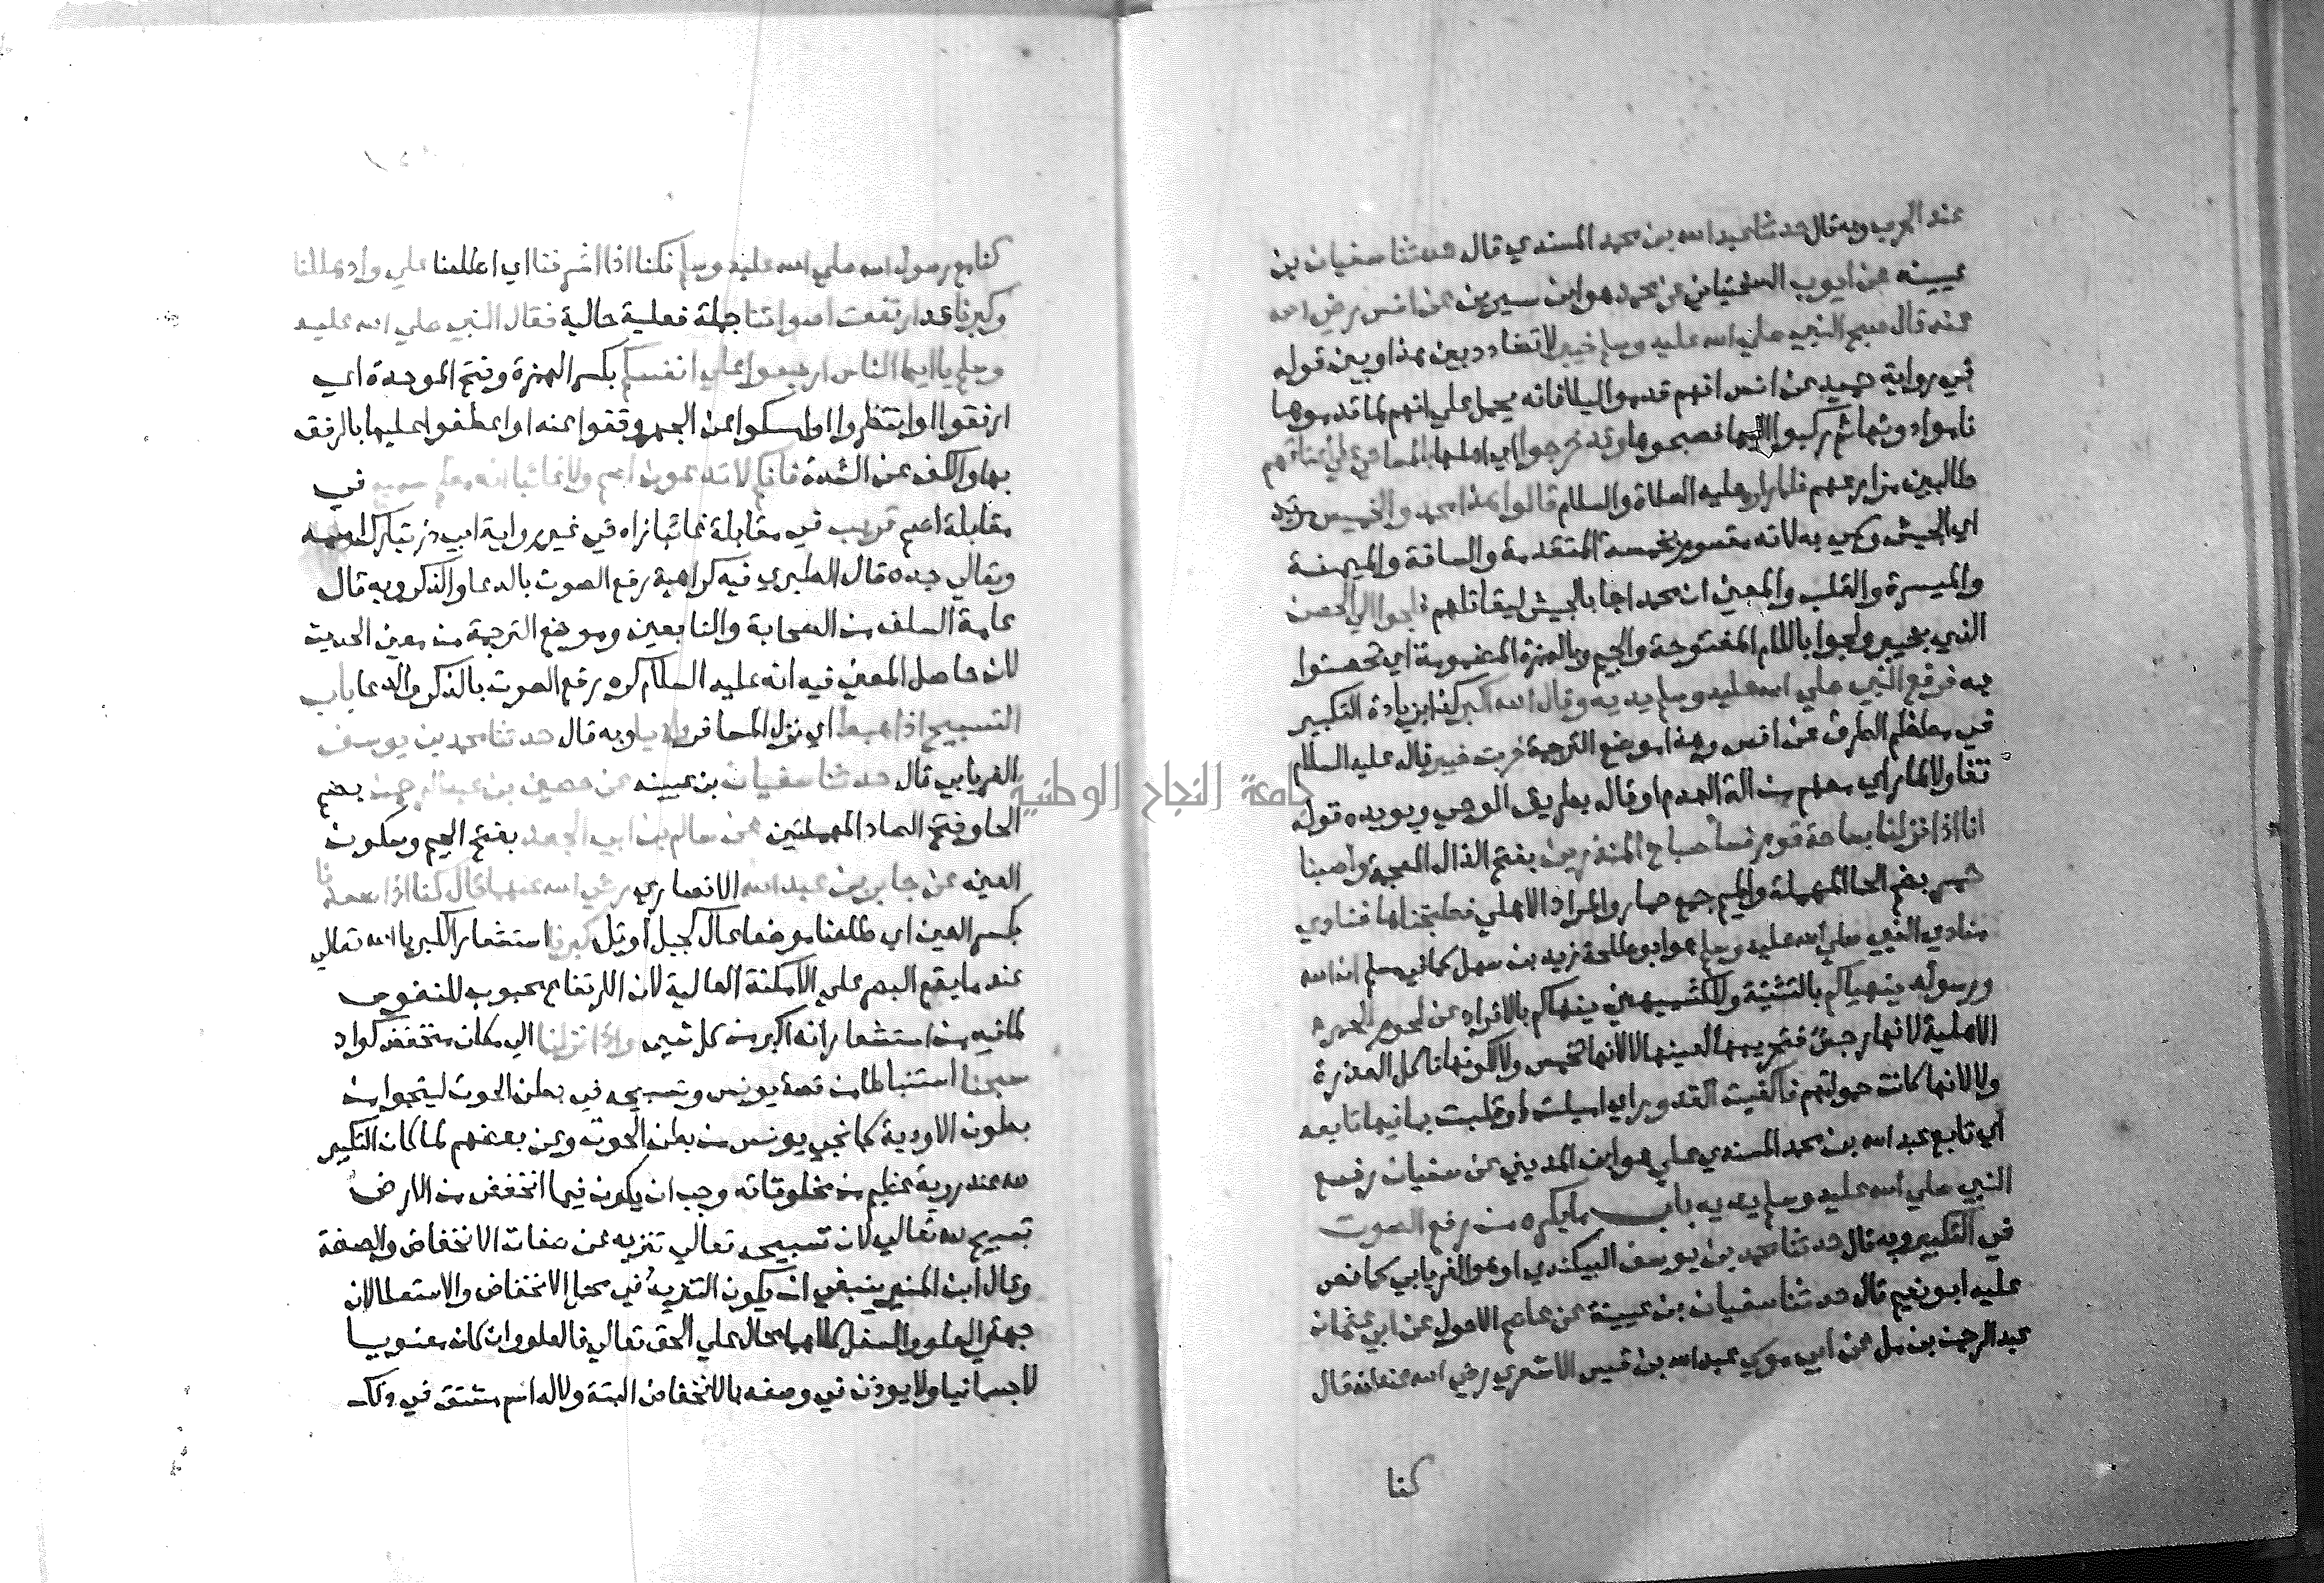 عند الحرب وبه قال حدثنا عبد الله بن محمد المسندي قال حدثنا سفيان بن
عيينه عن ايوب السختياني عن محمد هو ابن سيرين عن انس رضي الله
عنه قال صبح النبي صلي الله عليه وسلم خيبر لا تضادد بين هذا وبين قوله
في رواية حميد عن انس انهم قدموا ليلا فانه يحمل علي انهم لما قدموها
ناموا دونها ثم ركبوا اليها فصبحوها وقد خرجوا اي اهلها بالمساحي علي اعناقهم
طالبين مزارعهم فلما راوه عليه الصلاة والسلام قالوا هذا محمد والخميس مرتين
اي الجيش وسمي به لانه مقسوم بخمسة المتقدمة والساقة والميمنة
والميسرة والقلب والمعني ان محمدا جا بالجيش ليقاتلهم فلجوا الي الحصن
الذي بخيبر ولجوا باللام المفتوحة والجيم وبالهمزة المضمومة اي تحصنوا
به فرفع النبي صلي الله عليه وسلم يديه وقال الله اكبر كذا بزيادة التكبير
في معظم الطرق عن انس وهذا موضع الترجمة خربت خيبر قاله عليه السلام
تفاولا لما راي معهم من الة الهدم او قاله بطريق الوحي ويويده قوله
انا اذا نزلنا بساحة قوم فسا صباح المنذرين بفتح الذال المعجمة واصبنا
حمر بضم الحا المهملة والميم جمع حمار والمراد الاهلي فطبخناها فنادي
منادي النبي صلي الله عليه وسلم هو ابو طلحة زيد بن سهل كما في مسلم ان الله
ورسوله ينهيانكم بالتثنية وللكشميهني ينهاكم بالافراد عن لحوم الحمر
الاهلية لانها رجس فتحريمها لعينها لا لانها تخمس ولا لكونها تاكل العذرة
ولا لانها كانت حمولتهم فاكفيت القدور اي اميلت او قلبت بما فيها تابعه
اي تابع عبد الله بن محمد المسندي علي هو ابن المديني عن سفيان رفع
النبي صلي الله عليه وسلم يديه باب ما يكره من رفع الصوت
في التكبير وبه قال حدثنا محمد بن يوسف البيكندي او هو الفريابي كما نص
عليه ابو نعيم قال حدثنا سفيان بن عيينة عن عاصم الاحول عن ابي عثمان
عبد الرحمن بن مل عن ابي موسي عبد الله بن قيس الاشعري رضي الله عنه انه قال
كنا
كنا مع رسول الله صلي الله عليه وسلم فكنا اذا اشرفنا اي اطلعنا علي واد هللنا
وكبرنا قد ارتفعت اصواتنا جملة فعلية حالية فقال النبي صلي الله عليه
وسلم يا ايها الناس اربعوا علي انفسكم بكسر الهمزة وفتح الموحدة اي
ارفقوا او انتظروا او امسكوا عن الجهر وقفوا عنه او اعطفوا عليها بالرفق
بها والكف عن الشدة فانكم لا تدعون اصم ولا غائبا انه معكم سميع في
مقابلة اصم قريب في مقابلة غائبا زاد في غير رواية ابي ذر تبارك اسمه
وتعالي جده قال الطبري فيه كراهية رفع الصوت بالدعا والذكر وبه قال
عامة السلف من الصحابة والتابعين وموضع الترجمة من معني الحديث
لان حاصل المعني فيه انه عليه السلام كره رفع الصوت بالذكر والدعا باب
التسبيح اذا هبط اي نزل المسافر واديا وبه قال حدثنا محمد بن يوسف
الفريابي قال حدثنا سفيان بن عيينه عن حصين بن عبد الرحمن بضم
الحا وفتح الصاد المهملتين عن سالم بن ابي الجعد بفتح الجيم وسكون
العين عن جابر بن عبد الله الانصاري رضي الله عنهما قال كنا اذا صعدنا
بكسر العين اي طلعنا موضعا عال كجبل او تل كبرنا استشعارا لكبريا الله تعالي
عند ما يقع البصر علي الامكنة العالية لان الارتفاع محبوب للنفوس
لما فيه من استشعار انه اكبر من كل شي واذا نزلنا الي مكان منخفض كواد
سبحنا استنباطا من قصة يونس وتسبيحه في بطن الحوت لينجوا من
بطون الاودية كما نجي يونس من بطن الحوت وعن بعضهم لما كان التكبير
لله عند روية عظيم من مخلوقاته وجب ان يكون فيما انخفض من الارض
تسبيح لله تعالي لان تسبيحه تعالي تنزيه عن صفات الانخفاض والضعة
وقال ابن المنير ينبغي ان يكون التنزيه في محل الانخفاض والاستعلا لان
جهتي العلو والسفل كلاهما محال علي الحق تعالي فالعلو وان كان معنويا
لا جسمانيا ولا يوذن في وصفه بالانخفاض البتة ولا له اسم مشتق في ذلك
جامعة النجاح الوطنية